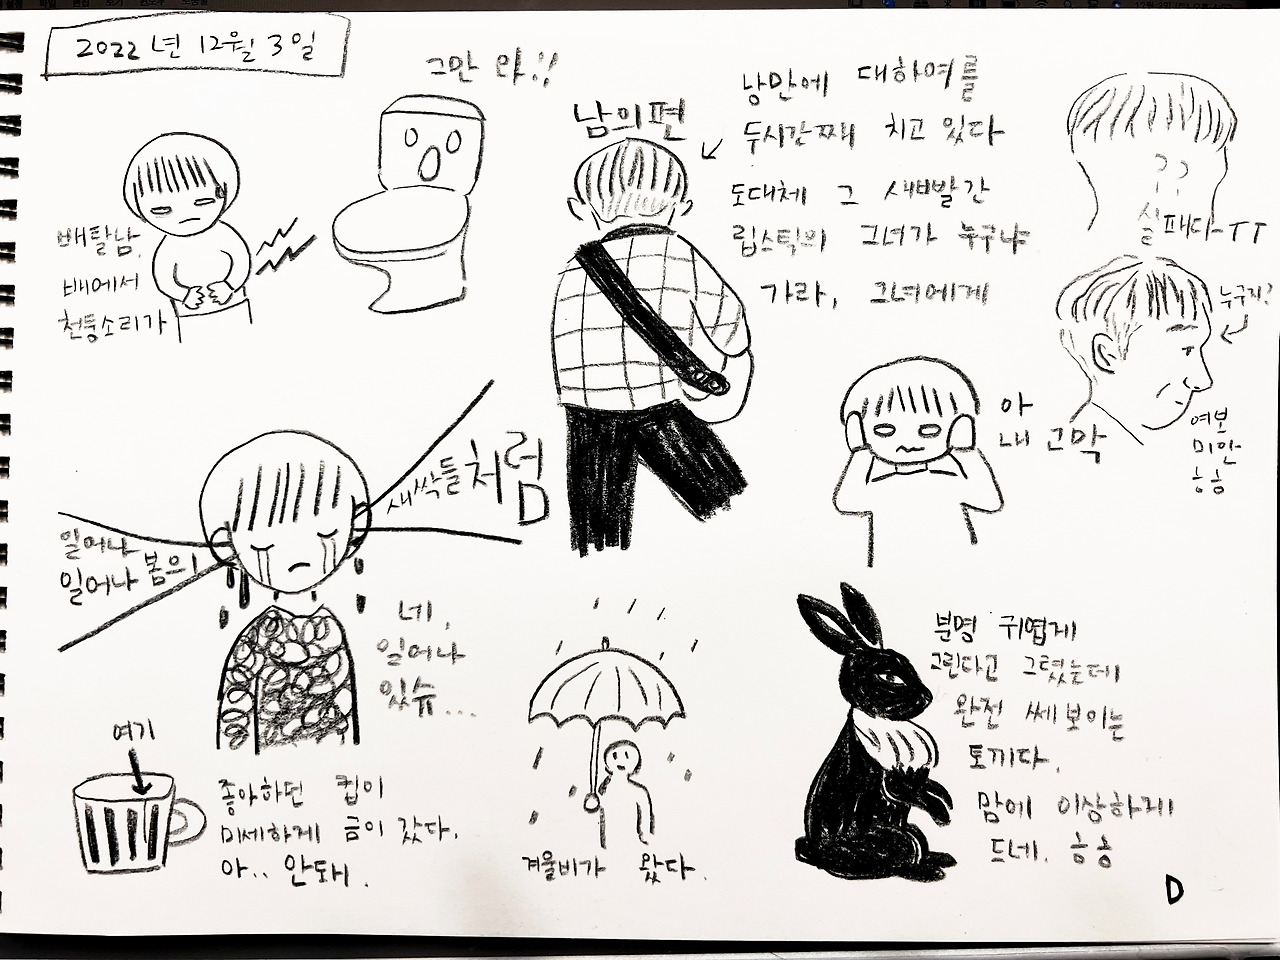 2022년 12월 3일
그만 와!!
배탈남.
배에서
천둥소리가
남의편
낭만에 대하여를
두시간째 치고 있다
도대체 그 새빨간
립스틱의 그녀가 누구냐
가라, 그녀에게
??
실패다 TT
누구지?
여보
미안
ㅎㅎ
아
내 고막
일어나
일어나 봄의
새싹들처럼
네,
일어나
있슈...
여기
좋아하던 컵이
미세하게 금이 갔다.
아.. 안돼.
겨울비가 왔다.
분명 귀엽게
그린다고 그렸는데
완전 쎄보이는
토끼다.
맘에 이상하게
드네. ㅎㅎ
D